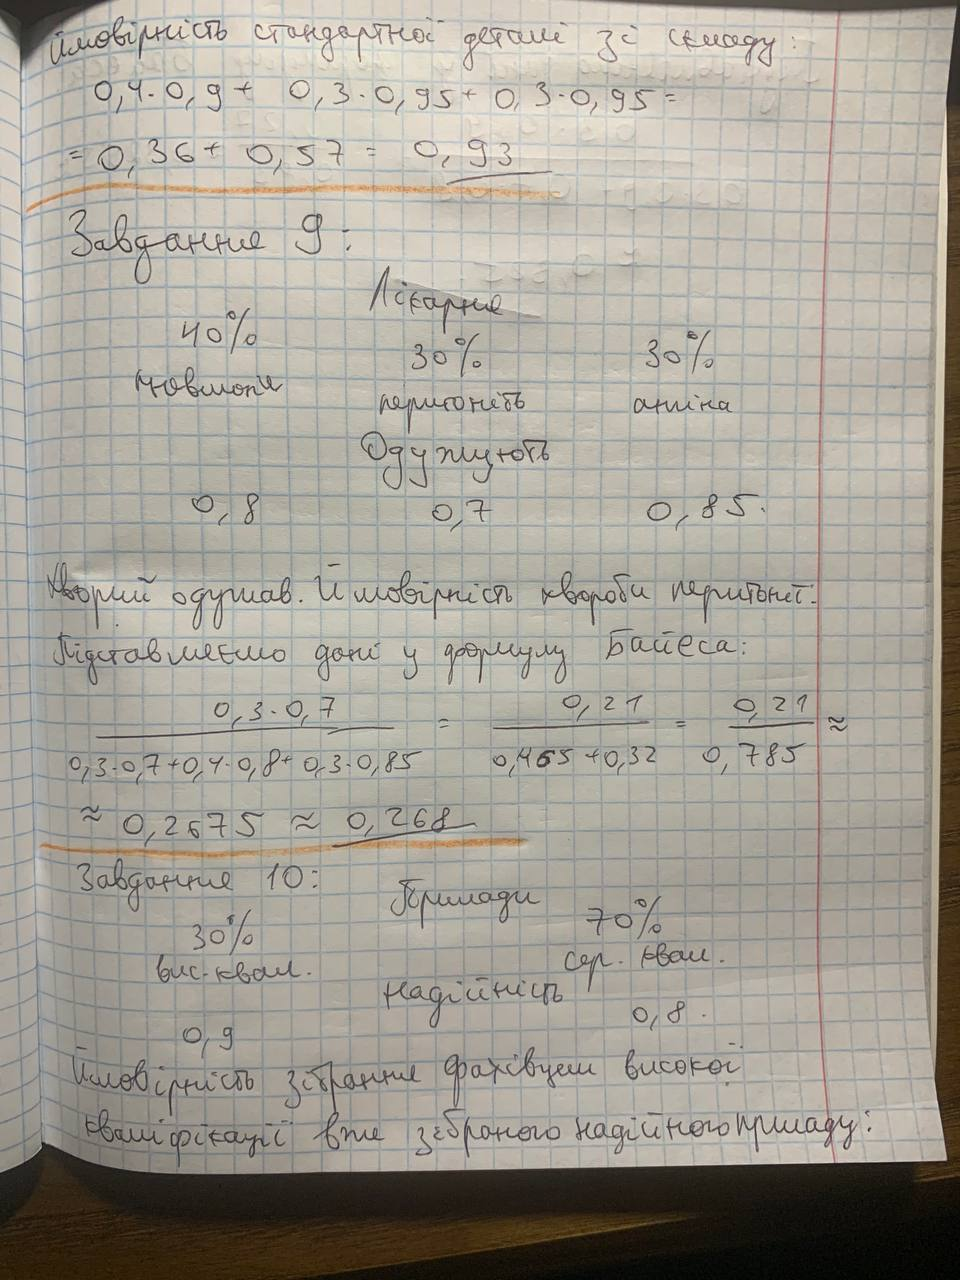 Ймовірність стандартної деталі зі складу:
0,4·0,9 + 0,3·0,95 + 0,3·0,95 =
= 0,36 + 0,57 = 0,93
Завдання 9:
Лікарня
40% 30% 30%
перитоніт ангіна
Одужують
0,8 0,7 0,85.
Хворий одужав. Ймовірність хвороби перитоніт:
Підставляємо дані у формулу Байеса:
0,3·0,7 / 0,3·0,7+0,4·0,8+0,3·0,85 = 0,21 / 0,465+0,32 = 0,21 / 0,785 ≈
≈ 0,2675 ≈ 0,268
Завдання 10:
Прилади
30% 70%
вис. квал. сер. квал.
Надійність
0,9 0,8.
Ймовірність зібрання фахівцем високої
кваліфікації вже зібраного надійного приладу: